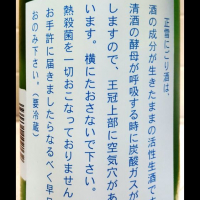 正雪にごり酒は、
酒の成分が生きたままの活性生酒で
清酒の酵母が呼吸する時に炭酸ガスが
しますので、王冠上部に空気穴があ
います。横にたおさないで下さい。
熱殺菌を一切おこなっておりません
お手許に届きましたらなるべく早
おのみ下さい。(要冷蔵)